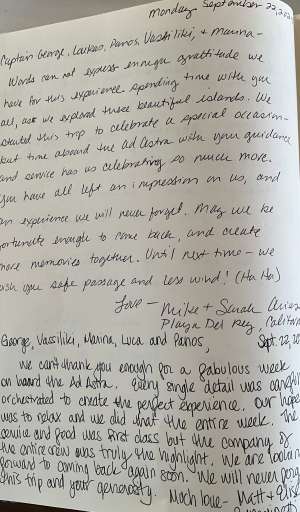 Monday September 22, 202
Captain George, Loukas, Panos, Vassiliki, + Marina -
Words can not express enough gratitude we
have for this experience spending time with you
all, as we explored these beautiful islands. We
started this trip to celebrate a special occasion -
but time aboard the Ad Astra with your guidance
and service has us celebrating so much more.
You have all left an impression on us, and
an experience we will never forget. May we be
fortunate enough to come back, and create
more memories together. Until next time - we
wish you safe passage and less wind! (Ha Ha)
Love - Mike + Sarah
Playa Del Rey, Californ
George, Vassiliki, Marina, Luca and Panos, Sept. 22, 202
We can't thank you enough for a fabulous week
on board the Ad Astra. Every single detail was careful
orchestrated to create the perfect experience. Our hope
was to relax and we did that the entire week. The
service and food was first class but the company of
the entire crew was truly the highlight. We are lookin
forward to coming back again soon. We will never forg
this trip and your generosity. Much love - Matt + Elis